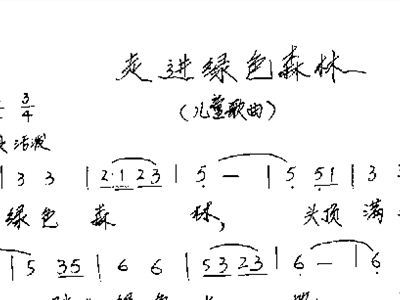 走进绿色森林
(儿童歌曲)
3/4
活泼
| 3 3 | 2·1 23 | 5 — | 5 51 | 3 3
绿色 森 林, 头顶 满
| 5 35 | 6 6 | 53 23 | 6 — | 6
绿色